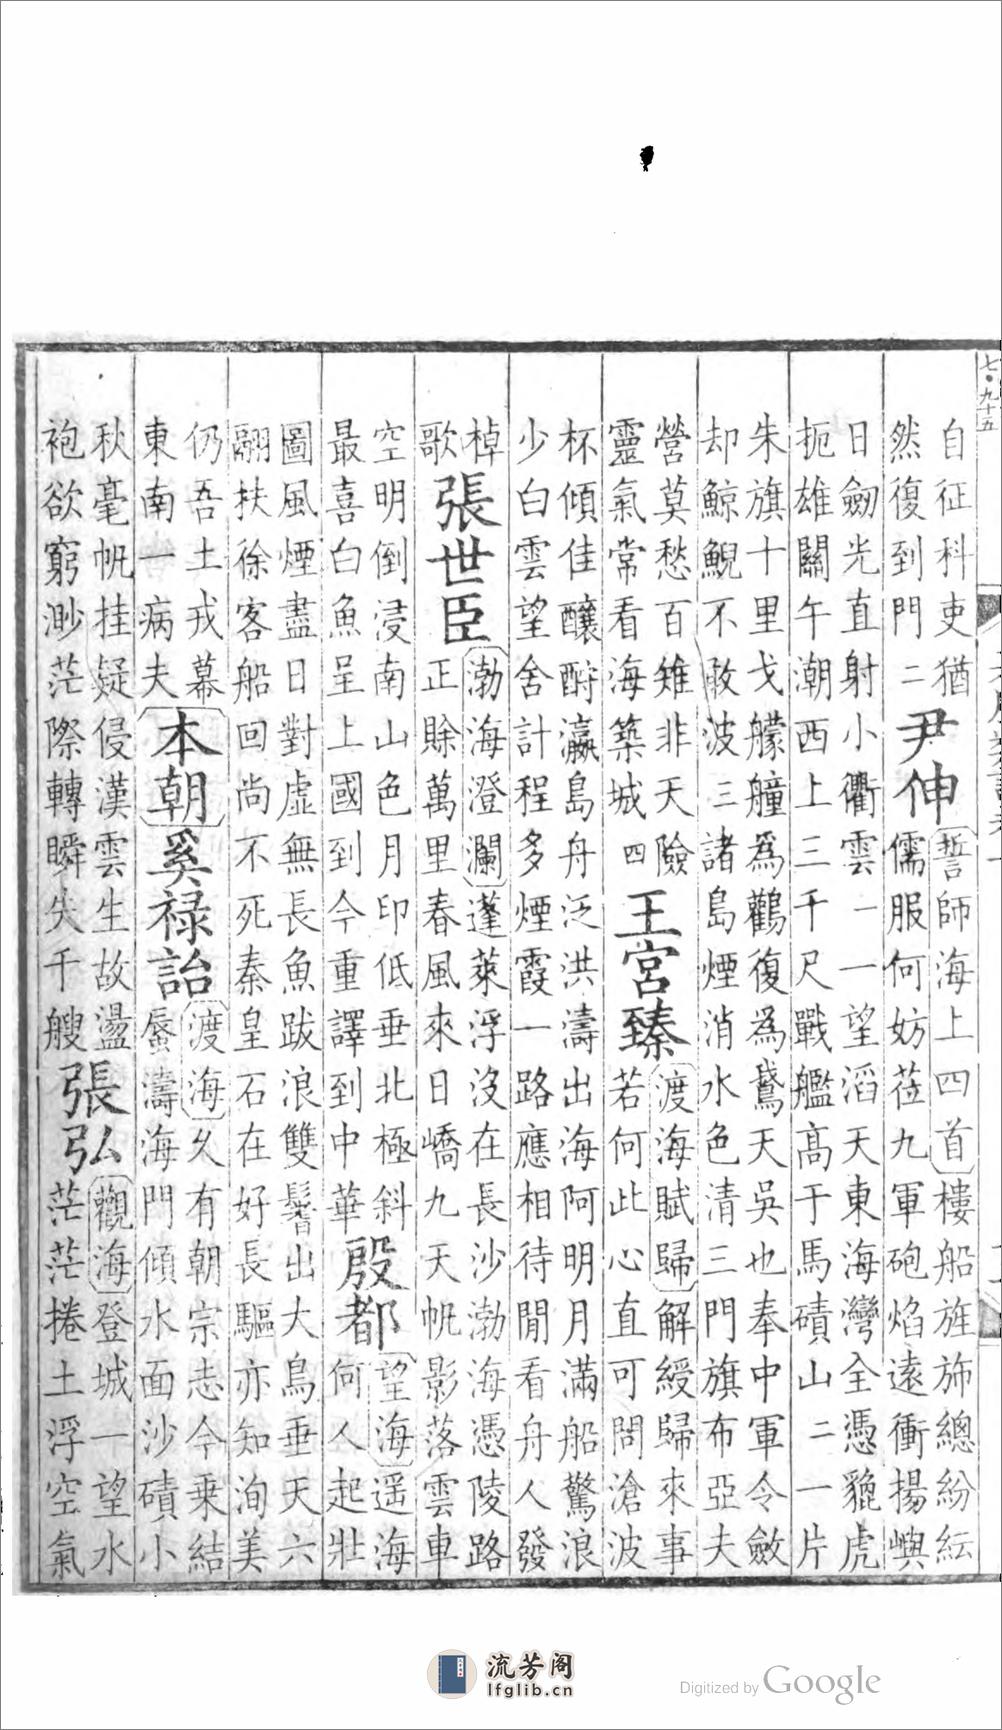 七·九十五
自征科吏猶
然復到門二
尹伸
誓師海上四首樓船旌斾總紛紜
儒服何妨莅九軍砲焰遠衝揚嶼
日劒光直射小衢雲一一望滔天東海灣全憑貔虎
扼雄關午潮西上三千尺戰艦高于馬磧山二一片
朱旗十里戈艨艟爲鸛復爲鵞天吳也奉中軍令斂
却鯨鯢不敢波三諸島煙消水色清三門旗布亞夫
營莫愁百雉非天險
靈氣常看海築城四
王宮臻
渡海賦歸解綬歸來事
若何此心直可問滄波
杯傾佳釀酹瀛島舟泛洪濤出海阿明月滿船驚浪
少白雲望舍計程多煙霞一路應相待閒看舟人發
棹
歌
張世臣
渤海澄瀾蓬萊浮沒在長沙渤海憑陵路
正賒萬里春風來日嶠九天帆影落雲車
空明倒浸南山色月印低垂北極斜
最喜白魚呈上國到今重譯到中華
殷都
望海遥海
何人起壯
圖風煙盡日對虛無長魚跋浪雙鬐出大鳥垂天六
翮扶徐客船回尚不死秦皇石在好長驅亦知洵美
仍吾土戎幕
東南一病夫
本朝奚禄詒
渡海久有朝宗志今乗結
蜃濤海門傾水面沙磧小
秋毫帆挂疑侵漢雲生故盪
袍欲窮渺茫際轉瞬失千艘
張弘
觀海登城一望水
茫茫捲土浮空氣
流芳阁
lfglib.cn
Digitized by Google